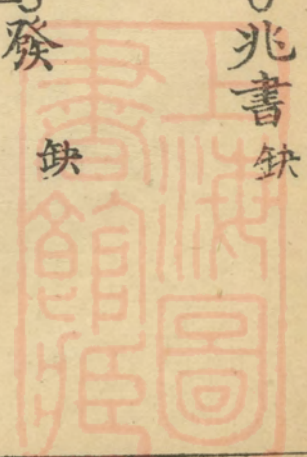 兆書缺
發 缺
上海圖
書館藏